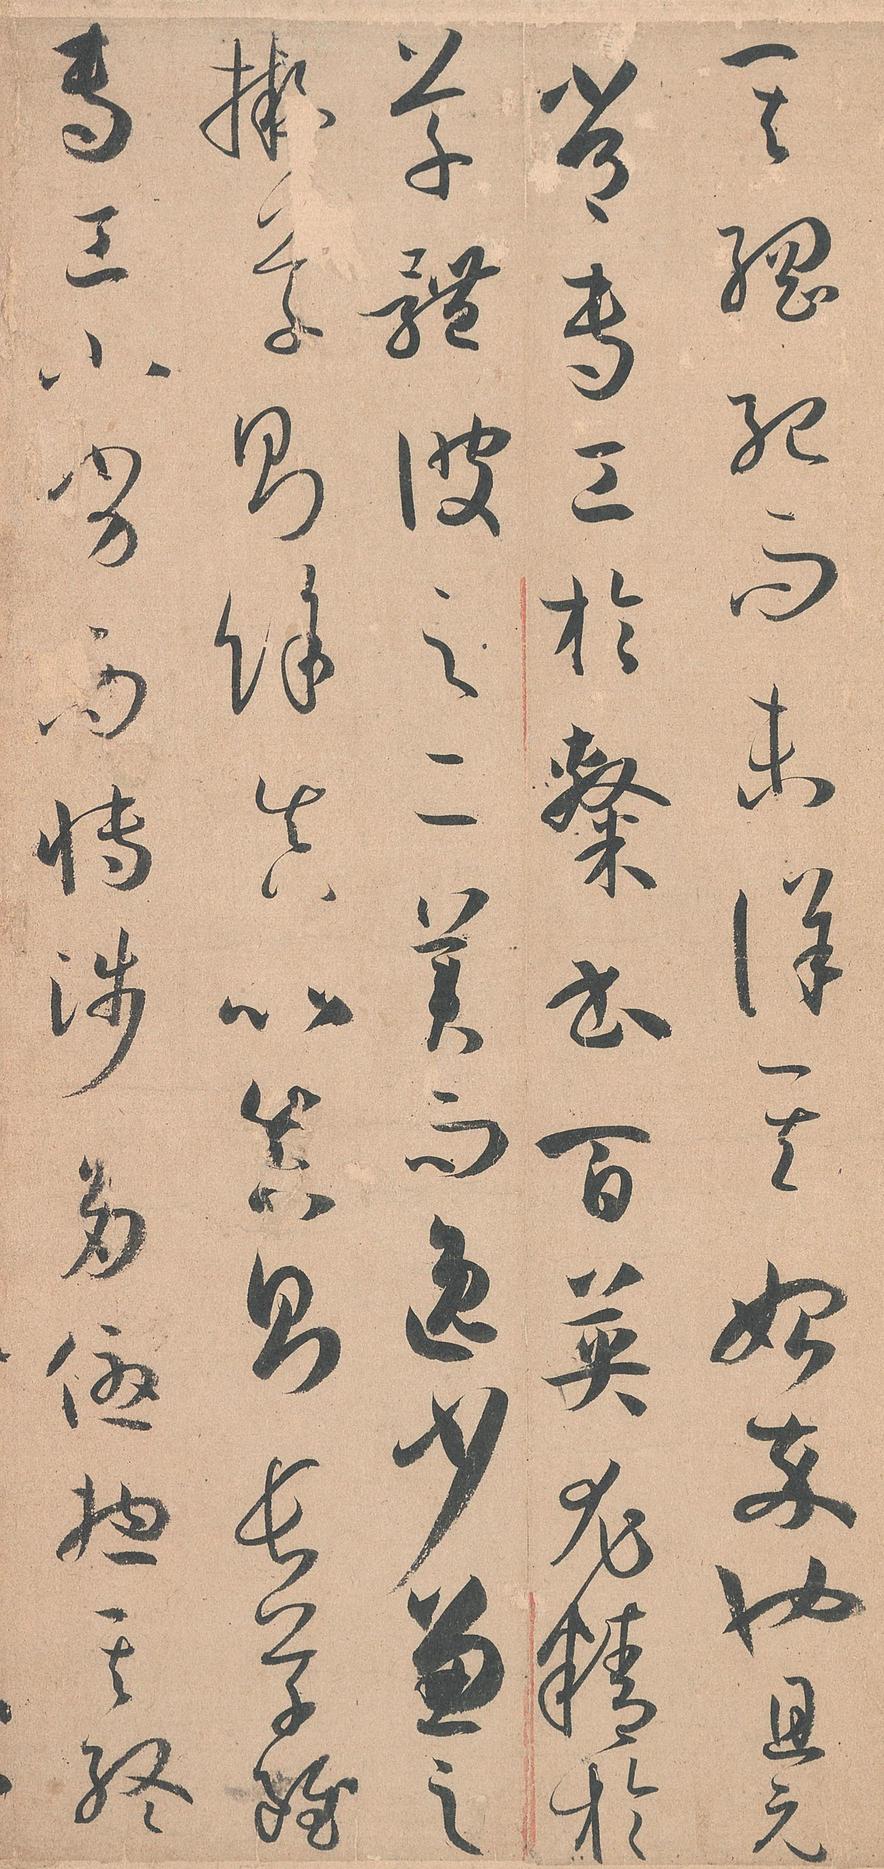 其綱紀而未詳其始卒也且元
常專工於隸書百英尤精於
草體彼之二美而逸少兼之
擬草則餘真比真則長草雖
專工小劣而博涉多優揔其終